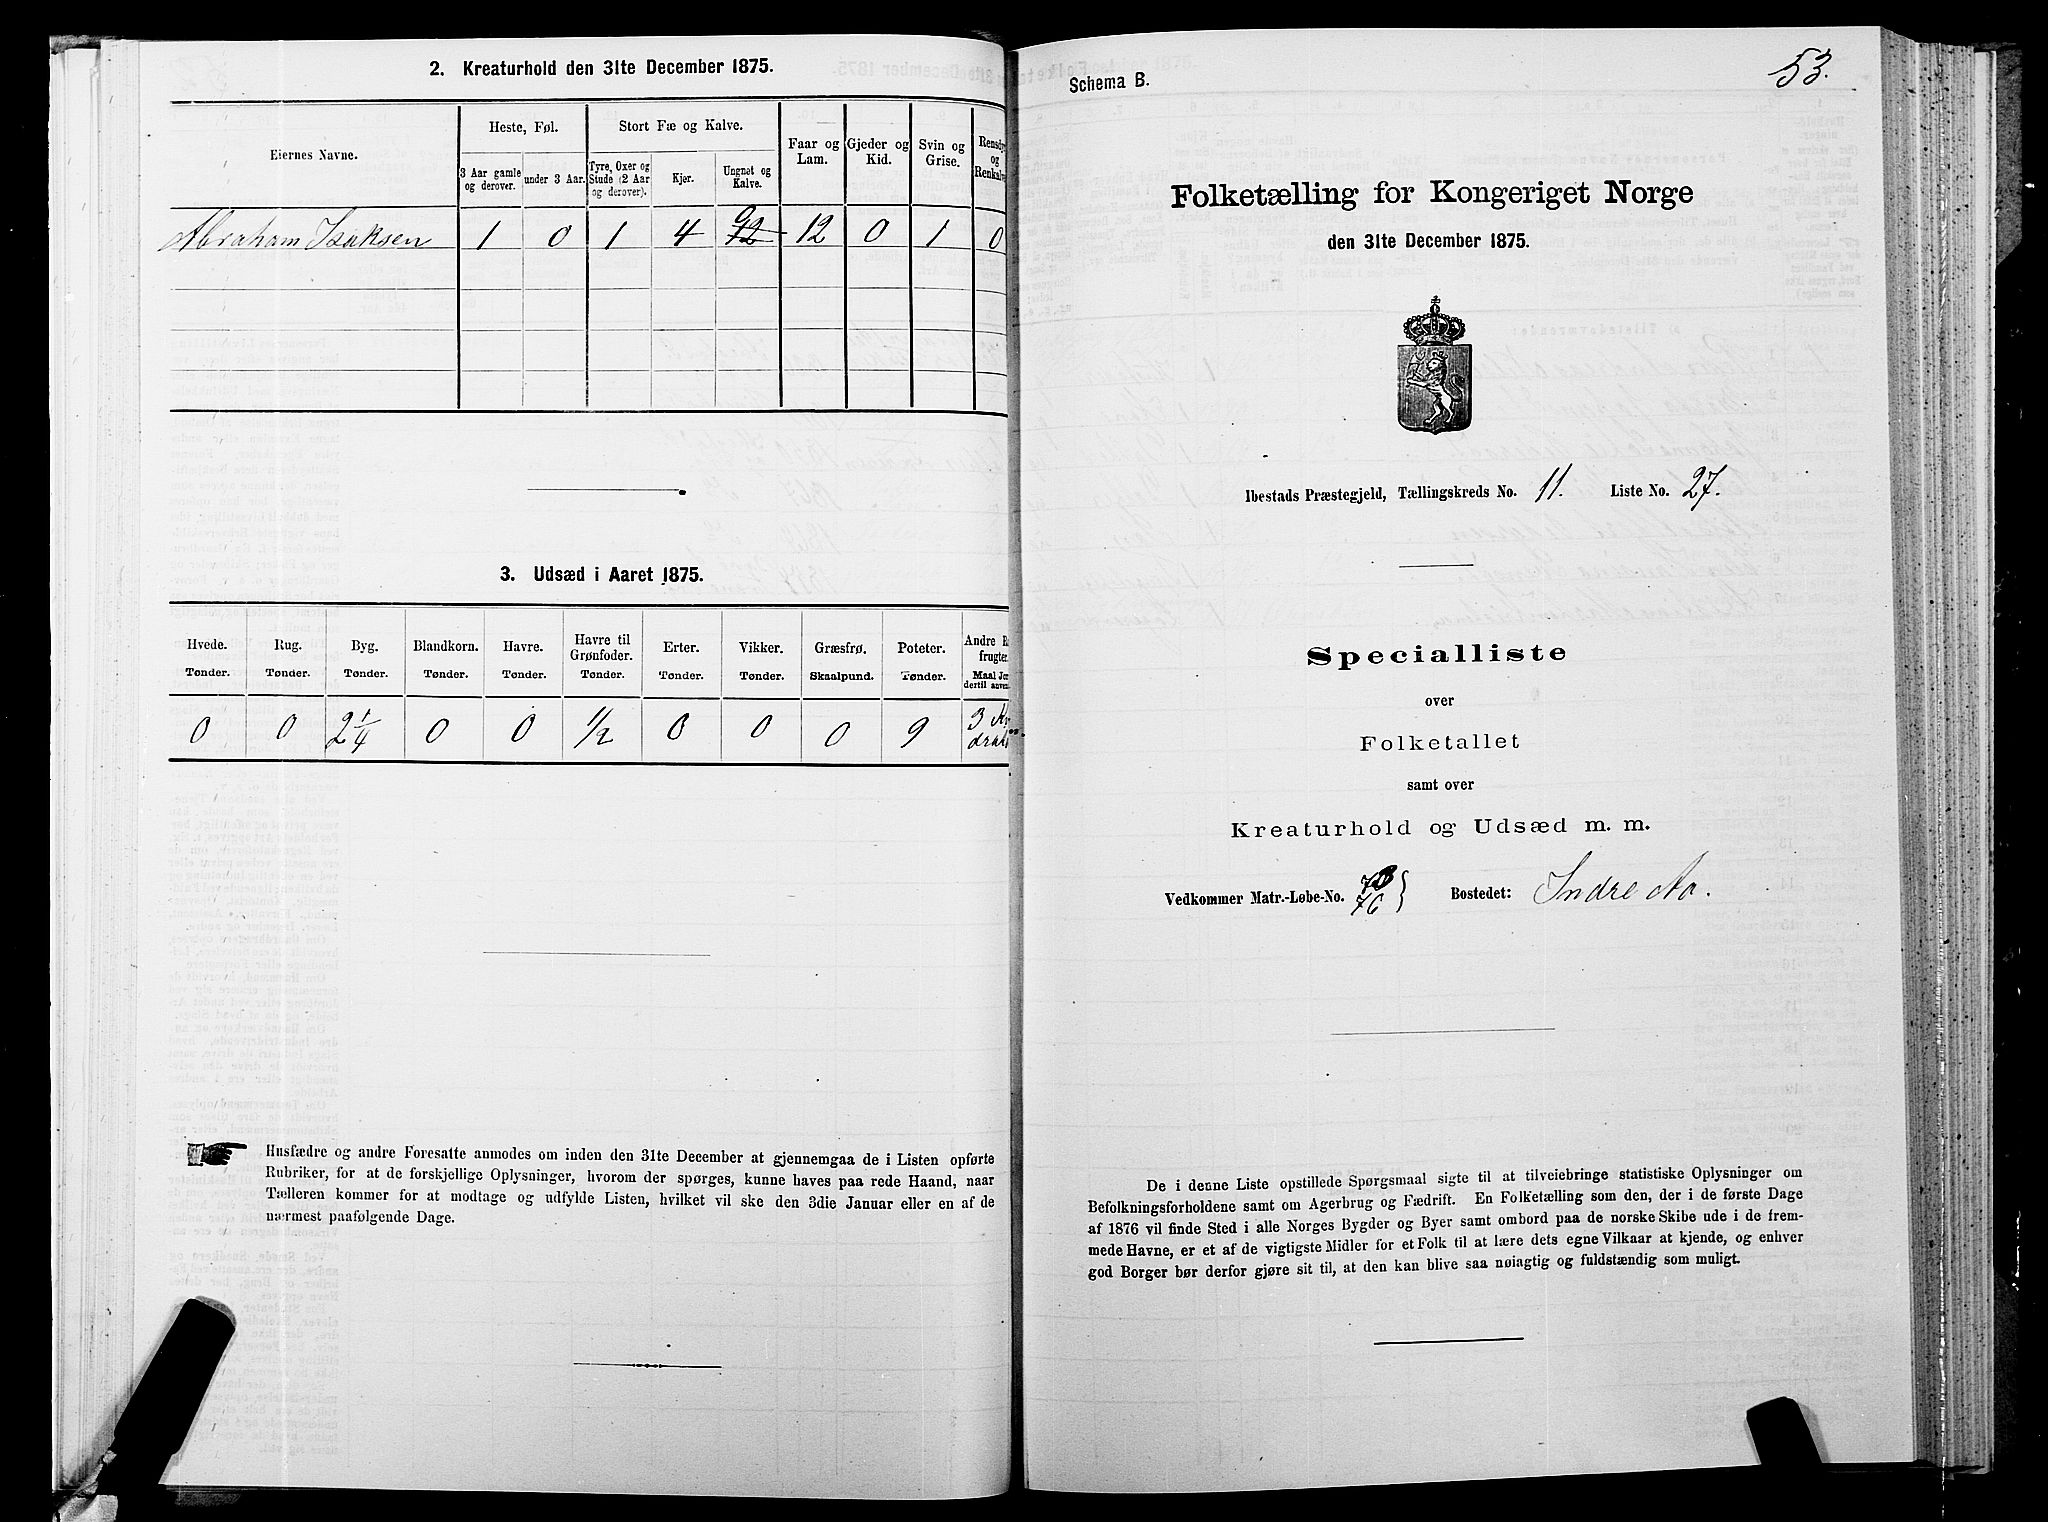 2. Kreaturhold den 31te December 1875.
Eiernes Navne.
Heste, Føl.
3 Aar gamle og derover.
under 3 Aar.
Stort Fæ og Kalve.
Tyre, Oxer og Stude (2 Aar og derover).
Kjer.
Ungnet og Kalve.
Faar og Lam.
Gjeder og Kid.
Svin og Grise.
Rensdyr og Renkalve
Abraham Isaksen 1 0 1 4 12 0 1 0
3. Udsæd i Aaret 1875.
Hvede. Rug. Byg. Blandkorn. Havre. Havre til Grønfoder. Erter. Vikker. Græsfrø. Poteter. Andre
frugter.
Tønder. Tønder. Tønder. Tønder. Tønder. Tønder. Tønder. Tønder. Skaalpund. Tønder. Maal Jor
dertil anven
0 0 2 1/4 0 0 1/2 0 0 0 9 3
Husfædre og andre Foresatte anmodes om inden den 31te December at gjennemgaa de i Listen opførte
Rubriker, for at de forskjellige Oplysninger, hvorom der spørges, kunne haves paa rede Haand, naar
Tælleren kommer for at modtage og udfylde Listen, hvilket vil ske den 3die Januar eller en af de
nærmest paafølgende Dage.
53.
Schema B.
Folketælling for Kongeriget Norge
den 31te December 1875.
Ibestads Præstegjeld, Tællingskreds No. 11. Liste No. 27.
Specialliste
over
Folketallet
samt over
Kreaturhold og Udsæd m. m.
Vedkommer Matr.-Løbe-No. 76 Bostedet: Indre Aa.
De i denne Liste opstillede Spørgsmaal sigte til at tilveiebringe statistiske Oplysninger om
Befolkningsforholdene samt om Agerbrug og Fædrift. En Folketælling som den, der i de første Dage
af 1876 vil finde Sted i alle Norges Bygder og Byer samt ombord paa de norske Skibe ude i de frem-
mede Havne, er et af de vigtigste Midler for et Folk til at lære dets egne Vilkaar at kjende, og enhver
god Borger bør derfor gjøre sit til, at den kan blive saa nøiagtig og fuldstændig som muligt.